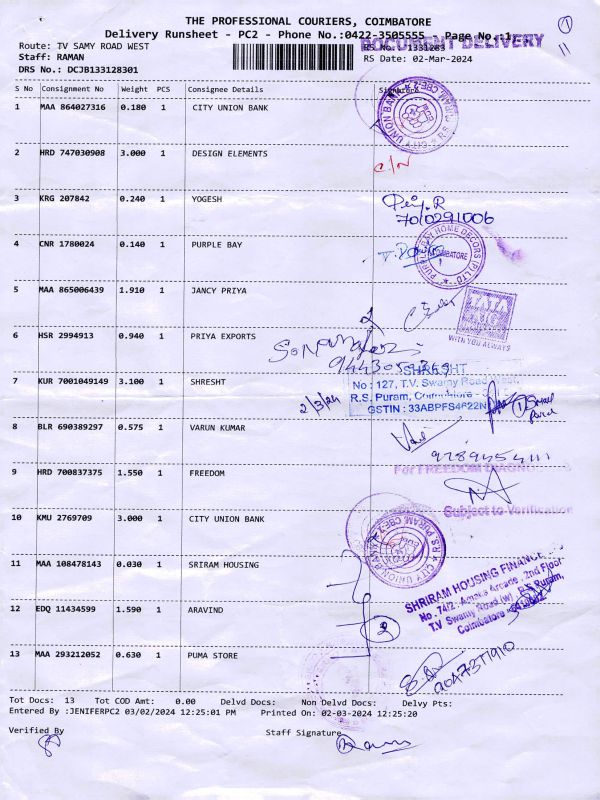 THE PROFESSIONAL COURIERS, COIMBATORE
Delivery Runsheet - PC2 - Phone No.:0422-3505555 - Page No.:1
DOCUMENT DELIVERY
Route: TV SAMY ROAD WEST
RS No.: 1331283
Staff: RAMAN
RS Date: 02-Mar-2024
DRS No.: DCJB133128301
S No Consignment No Weight PCS Consignee Details Signature
1 MAA 864027316 0.180 1 CITY UNION BANK
2 HRD 747030908 3.000 1 DESIGN ELEMENTS
C/N
3 KRG 207842 0.240 1 YOGESH
7010291006
4 CNR 1780024 0.140 1 PURPLE BAY
HOME DECORS (P) LTD
COIMBATORE
5 MAA 865006439 1.910 1 JANCY PRIYA
TATA
WITH YOU ALWAYS
6 HSR 2994913 0.940 1 PRIYA EXPORTS
7 KUR 7001049149 3.100 1 SHRESHT
SHRESHT
No : 127, T.V. Swamy Road West,
R.S. Puram, Coimbatore -
GSTIN : 33ABPFS4622N
2/3/24
8 BLR 690389297 0.575 1 VARUN KUMAR
9 HRD 700837375 1.550 1 FREEDOM
For FREEDOM
Subject to Verification
10 KMU 2769709 3.000 1 CITY UNION BANK
R.S. PURAM, CBE-2
CITY UNION
11 MAA 108478143 0.030 1 SRIRAM HOUSING
SHRIRAM HOUSING FINANCE
No. 74/2, Arcade, 2nd Floor
T.V Swamy Road (w), R.S Puram,
Coimbatore
12 EDQ 11434599 1.590 1 ARAVIND
2
13 MAA 293212052 0.630 1 PUMA STORE
Tot Docs: 13 Tot COD Amt: 0.00 Delvd Docs: Non Delvd Docs: Delvy Pts:
Entered By :JENIFERPC2 03/02/2024 12:25:01 PM Printed On: 02-03-2024 12:25:20
Verified By Staff Signature